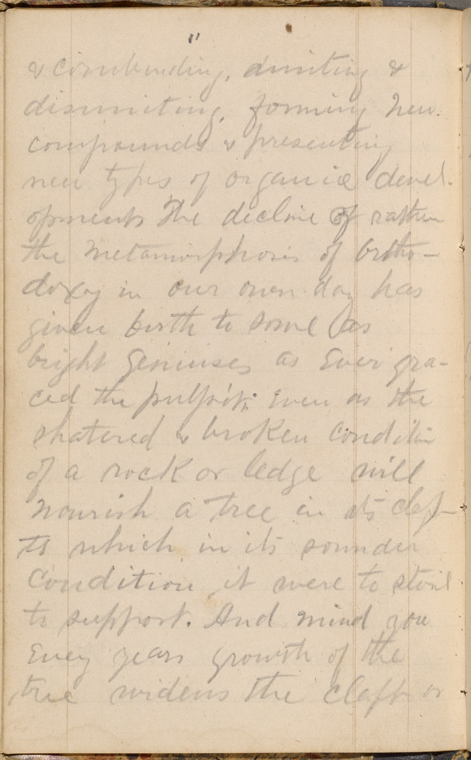 & combining, uniting &
disuniting, forming new
compounds & presenting
new types of organic devel-
opments The decline of rather
the metamorphosis of ortho-
doxy in our own day has
given birth to some as
bright Geniuses as Ever gra-
ced the pulpit; Even as the
shatered & broken condition
of a rock or ledge will
nourish a tree in its clef-
ts which in its sounder
Condition it were to
to support. And mind you
Every years growth of the
tree widens the cleft or